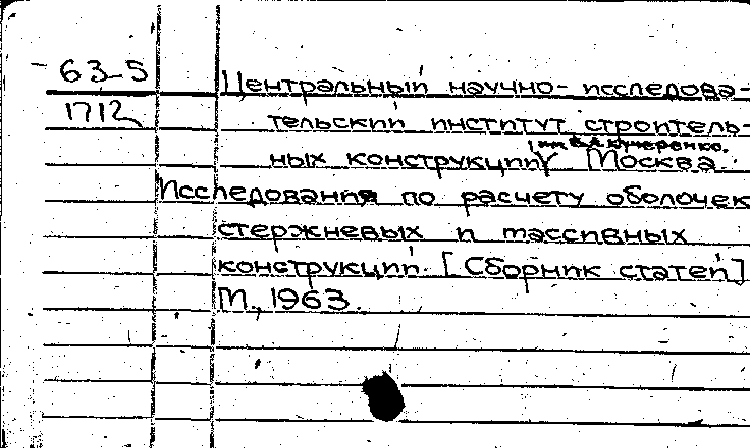 63-5
1712
Центральный научно-исследова-
тельский институт строитель-
им. В.А. Кучеренко.
ных конструкций Москва.
Исследования по расчету оболочек
стержневых и массивных
конструкций. [Сборник статей]
М., 1963.